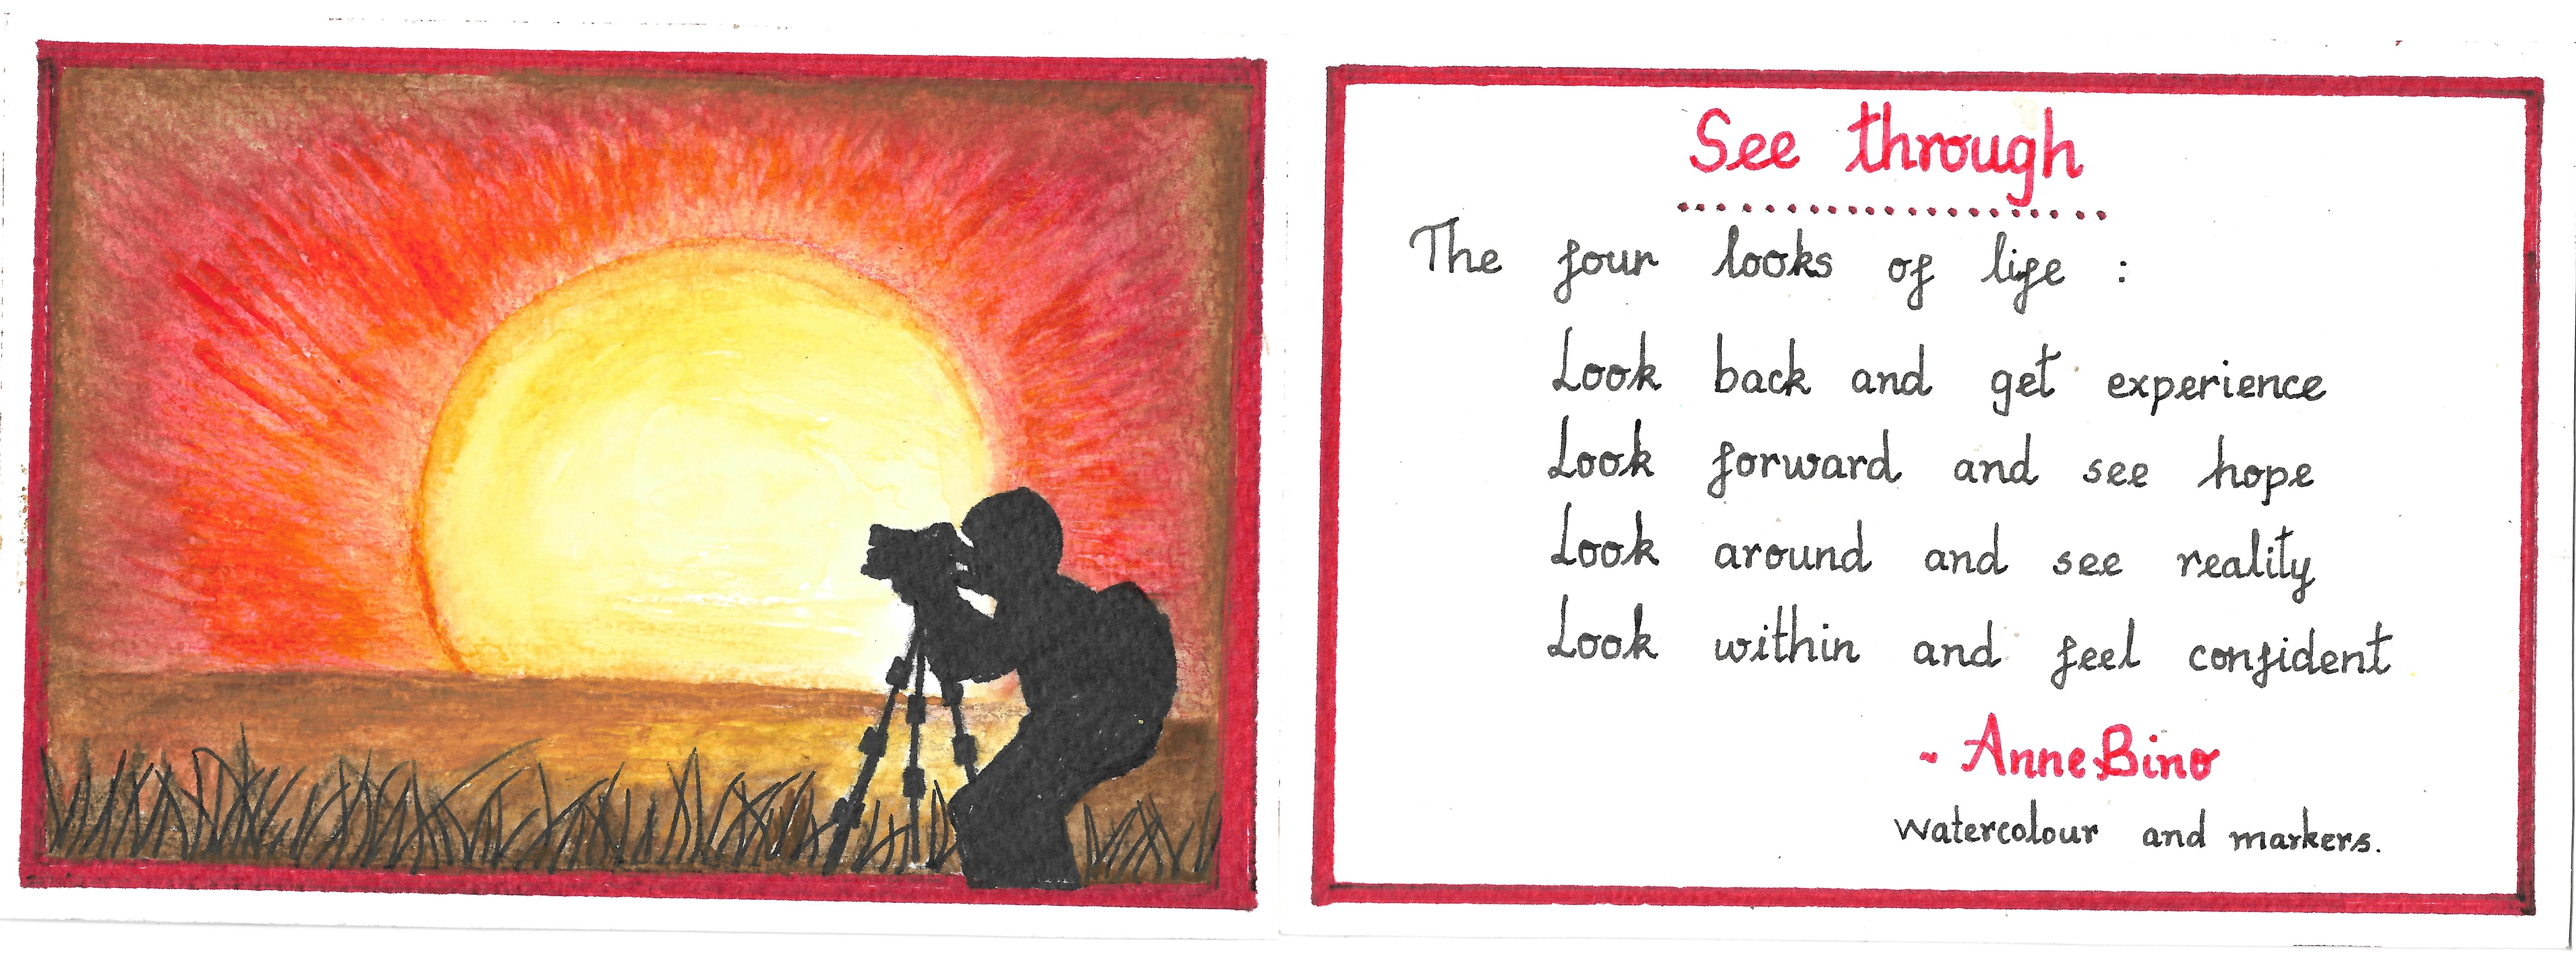 See through
The four looks of life :
Look back and get experience
Look forward and see hope
Look around and see reality
Look within and feel confident
- Anne Bino
Watercolour and markers.